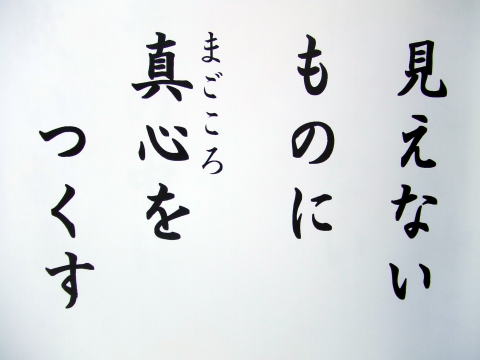 見えない
ものに
まごころ
真心を
つくす